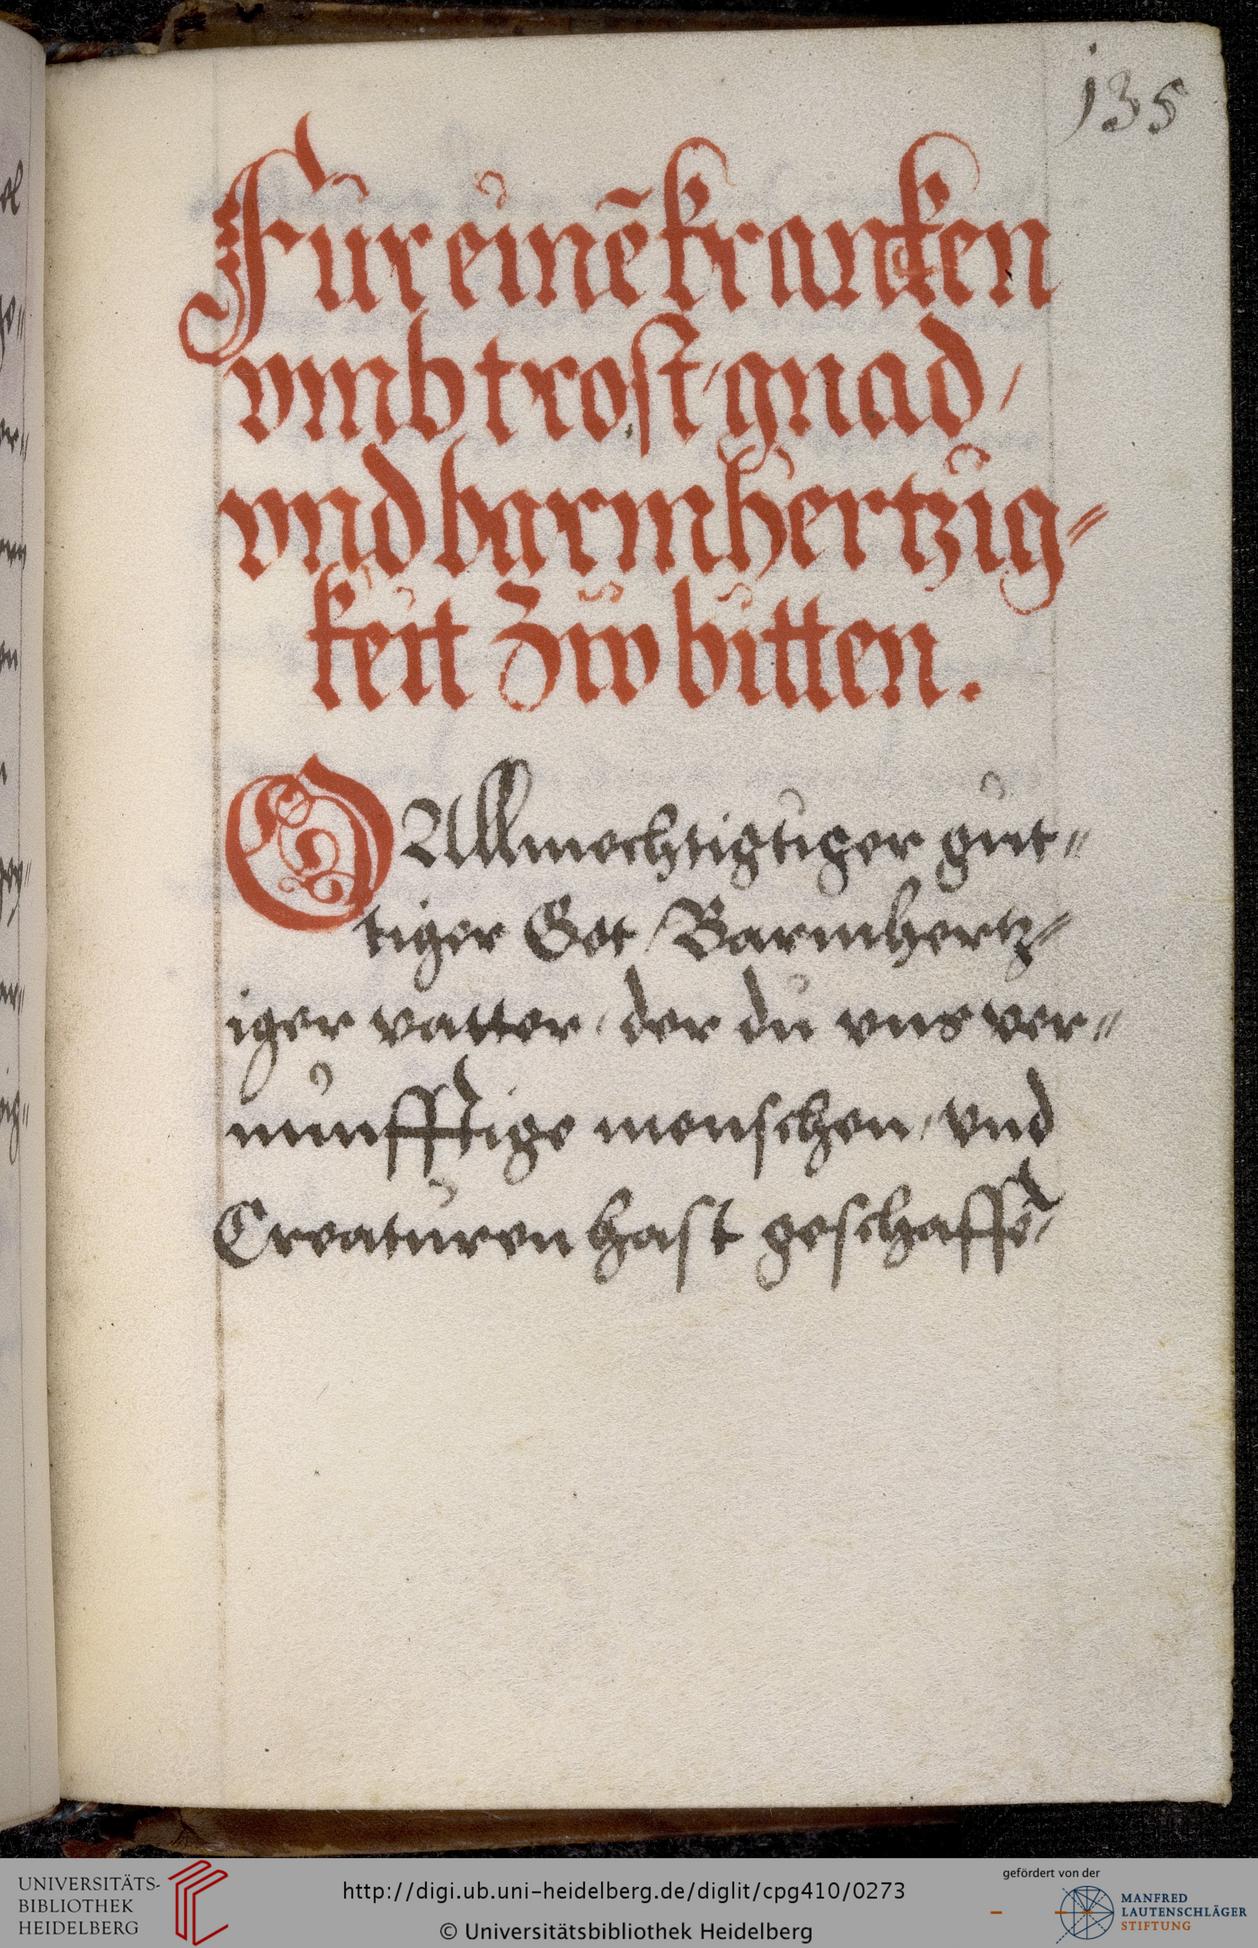 135
Fur einē krancken
vmb trost / gnad /
vnd barmhertzig=
keit zw bitten.
O Allmechtigtiger gut=
tiger Got / Barmhertz=
iger vatter / der du vns ver=
nunfftige menschen / vnd
Creaturen hast geschaffē /
UNIVERSITÄTS-
BIBLIOTHEK
HEIDELBERG
http://digi.ub.uni-heidelberg.de/diglit/cpg410/0273
© Universitätsbibliothek Heidelberg
gefördert von der
MANFRED
LAUTENSCHLÄGER
STIFTUNG